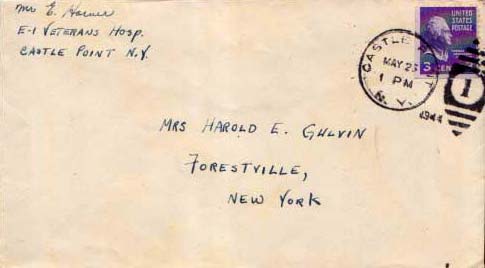 Mr E. Horner
E-1 VETERANS HOSP.
CASTLE POINT N.Y.
UNITED
STATES
POSTAGE
3 CENTS
CASTLE POINT
MAY 23
1 PM
N. Y.
1944
1
MRS HAROLD E. GULVIN
FORESTVILLE,
NEW YORK